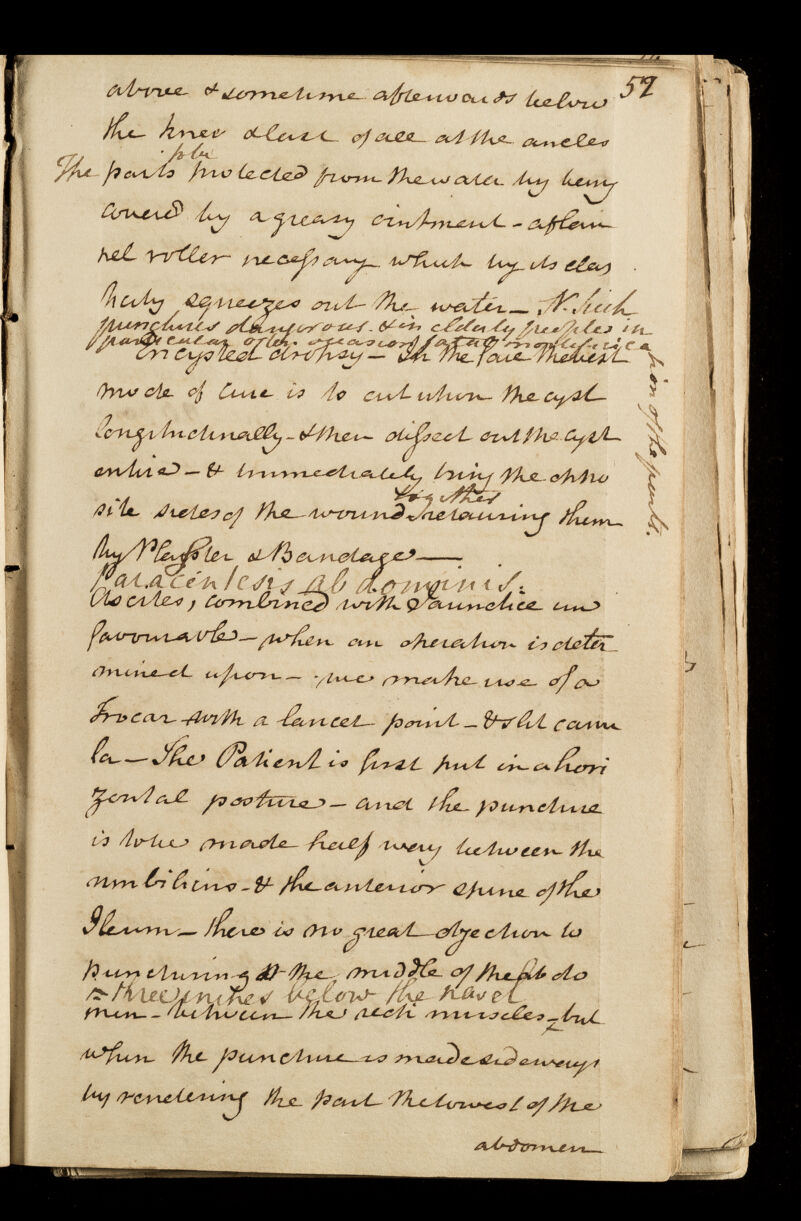 57
above & sometime afterwards below
the knee & last of all at the ancles
The parts to be protected from the water by being
covered by a greasy ointment - a flan
nel roller necessary which by its elas
ticity squeezes out the water - N. Such
punctures dangerous & in elderly peoples in
particular often occasion fatal mortifica
tion of the parts.
Encysted dropsy - In the case the best
mode of cure is to cut upon the cyst
longitudinally - & then dissect out the cyst
entire - & immediately bring the oppo
site sides of the wound together retaining them
by Plaster & Bandage -
Paracentesis abdominis.
Ascites, combined with Jaundice un
favourable - when an operation is deter
mined upon - we make use of a
Trocar with a lancet point - & slit canu
la - The Patient is first put in a hori
zontal posture - and the puncture
is to be made half way between the
umbilicus - & the anterior spine of the
Ileum - there is no great objection to
puncturing at the middle of the abdo
= three inches below the navel
men - between the recti muscles - but
when the puncture is made sideways
by rendering the part the lowest of the
abdomen